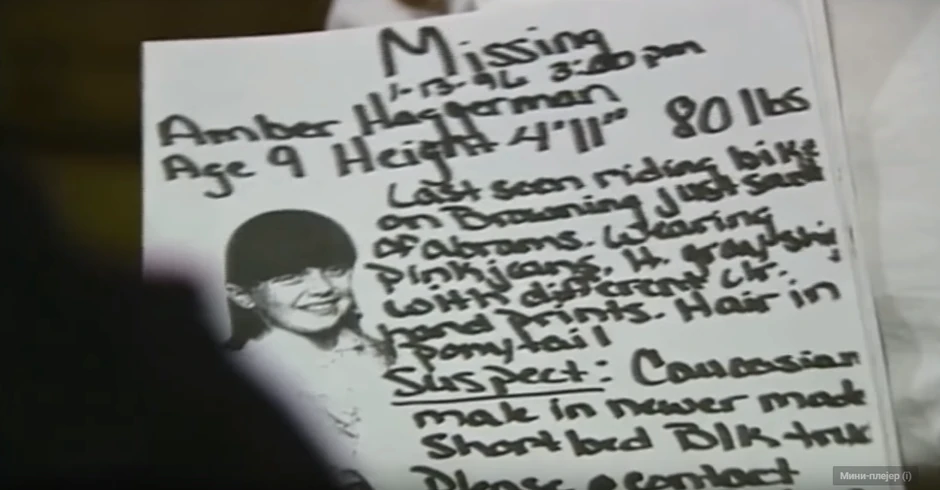 Missing
1-13-96 3:00 pm
Amber Haggerman
Age 9 Height 4'11" 80 lbs
Last seen riding bike
on Browning Just sout
of abrams. Wearing
pink jeans, lt. gray shi
with different clr.
hand prints. Hair in
ponytail
Suspect: Caucasian
male in newer mode
Short bed Blk truk
Please contact
Мини-плејер (i)